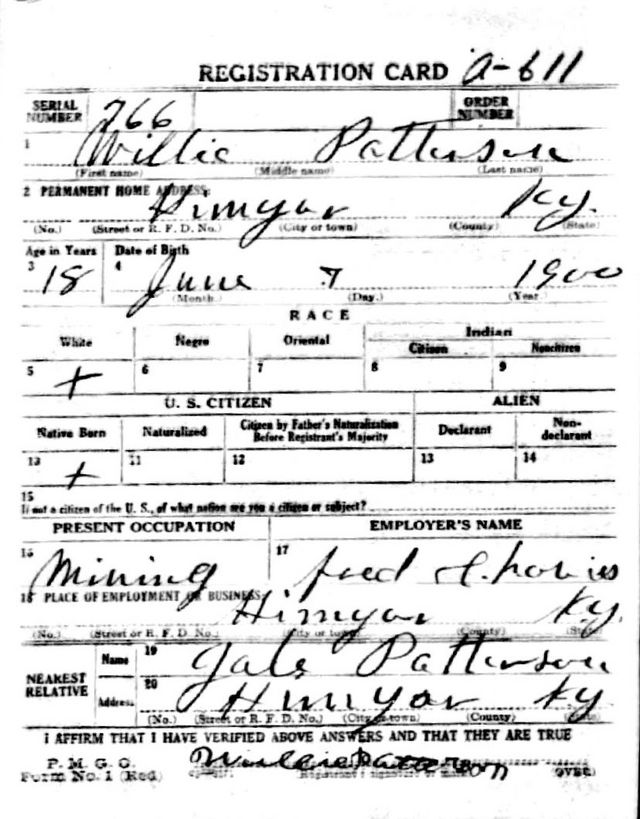 REGISTRATION CARD A-611
SERIAL NUMBER 266 ORDER NUMBER
1 Willie Patterson
(First name) (Middle name) (Last name)
2 PERMANENT HOME ADDRESS:
Himyar Ky.
(No.) (Street or R. F. D. No.) (City or town) (County) (State)
Age in Years Date of Birth
3 18 4 June 7 1900
(Month.) (Day.) (Year.)
RACE
White Negro Oriental Indian
Citizen Noncitizen
5 + 6 7 8 9
U. S. CITIZEN ALIEN
Native Born Naturalized Citizen by Father's Naturalization Before Registrant's Majority Declarant Non-declarant
10 + 11 12 13 14
15
If not a citizen of the U. S., of what nation are you a citizen or subject?
PRESENT OCCUPATION EMPLOYER'S NAME
16 Mining 17
18 PLACE OF EMPLOYMENT OR BUSINESS:
Himyar Ky.
(No.) (Street or R. F. D. No.) (City or town) (County) (State)
NEAREST RELATIVE Name 19 Patterson
Address 20 Himyar Ky
(No.) (Street or R. F. D. No.) (City or town) (County) (State)
I AFFIRM THAT I HAVE VERIFIED ABOVE ANSWERS AND THAT THEY ARE TRUE
P. M. G. O.
Form No. 1 (Red) Willie Patterson (OVER)